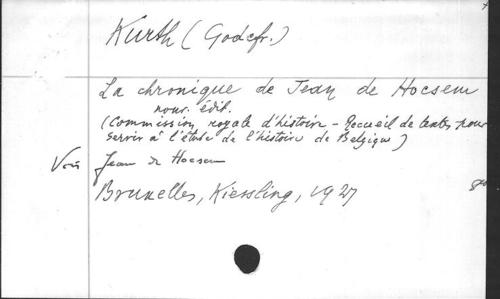 Kurth (Godefr.)
La chronique de Jean de Hocsem
nouv. édit.
(Commission royale d'histoire - Recueil de textes pour
servir à l'étude de l'histoire de Belgique)
Voir Jean de Hocsem
Bruxelles, Kiessling, 1927